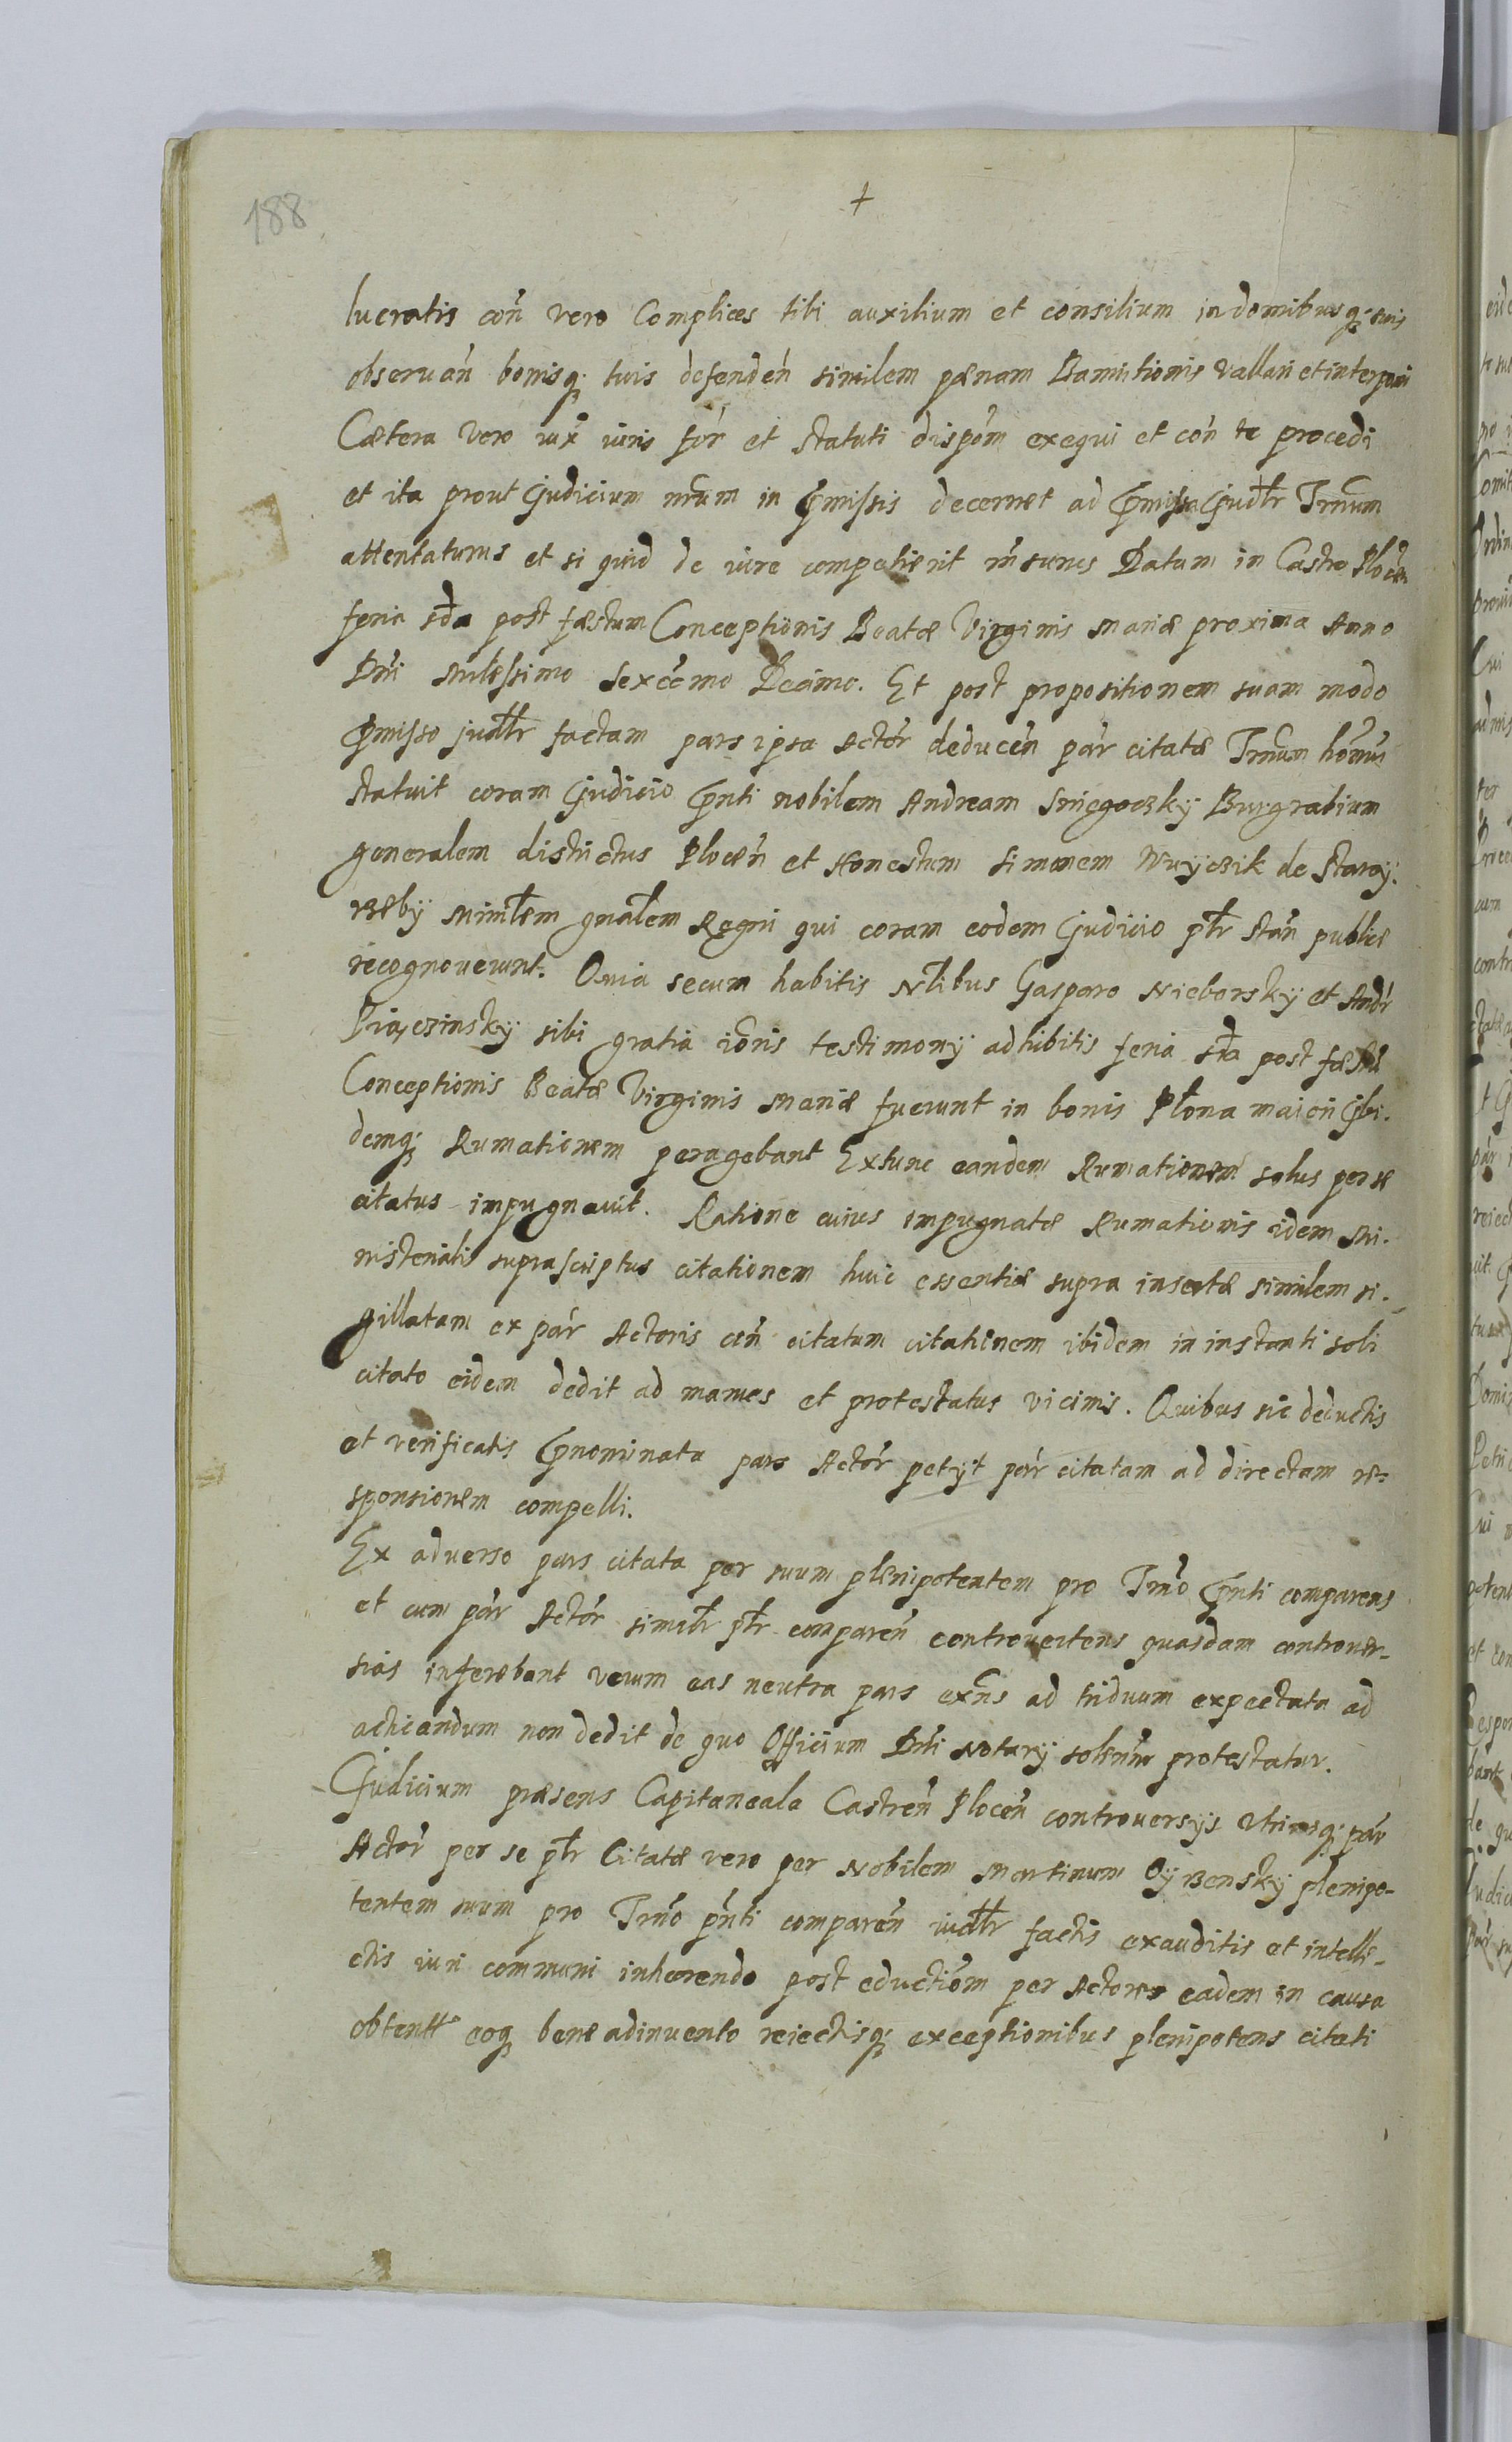 188
+
lucratis con̄ vero Complices tibi auxilium et consilium in domibusq; suis
obseruan̄ bonisq; tuis defenden̄ similem pænam Bannitionis vallari et interponi
Cætera vero iux iuris for̄ et statuti dispōm exequi et con̄ te procedi
et ita prout Judicium nr̄um in p̄missis decernet ad p̄missa Judlr Trn̄um
attentaturus et si quid de iure competierit rn̄surus Datum in Castro Plocen̄
feria sda post fæstum Conceptionis Beatæ Virginis Mariæ proxima Anno
Dn̄i Milessimo Sexcēmo Decimo. Et post propositionem suam modo
p̄misso judlr factam pars ipsa Actor̄ deducen̄ par̄ citatæ Trn̄um
statuit coram Judicio p̄nti nobilem Andream Sniegoczkÿ Burgrabium
generalem districtus Plocen̄ et Honestum Simonem Wuyczik de Starÿ.
rzebÿ Minlem gnalem Regni qui coram eodem Judicio plr stan̄ publicæ
recognoverunt. Quia secum habitis Nlibus Gasparo Nieborskÿ et Andr̄
sibi gratia testimony adhibitis feria sda post fæstū
Conceptionis Beatæ Virginis Mariæ fuerunt in bonis Plona maiori Ibi.
demq; Rumationem peragebant Extunc eandem Rumationem solus per se
citatus impugnauit. Ratione cuius impugnatæ Rumationis idem Mi.
nisterialis suprascriptus citationem huic essentiæ supra insertæ similem si.
gillatam ex par̄ Actoris con̄ citatum citationem ibidem in instanti soli
citato eidem dedit ad manus et protestatus vicinis. Quibus sic deductis
et verificatis p̄nominata pars Actor̄ petÿt par̄ citatam ad directam re=
sponsionem compelli.
Ex aduerso pars citata per suum plenipotentem pro Trn̄o p̄nti comparens
et cum par̄ Actor̄ similr plr comparen̄ controvertens quasdam controuer-
sias inferebant verum eas neutra pars exn̄s ad triduum expectata ad
acticandum non dedit de quo Officium Dn̄i Notarÿ protestatur.
Judicium præsens Capitaneale Castren̄ Plocen̄ controversÿs Vtriusq; par̄
Actor̄ per se plr Citatæ vero per Nobilem Martinum plenipo-
tentem suum pro Trn̄o p̄nti comparen̄ iudlr factis exauditis et intelle-
ctis iuri communi inhærendo post eductiōm per Actorem eadem in causa
eoq; bene adinuento reiectisq; exceptionibus plenipotens citati